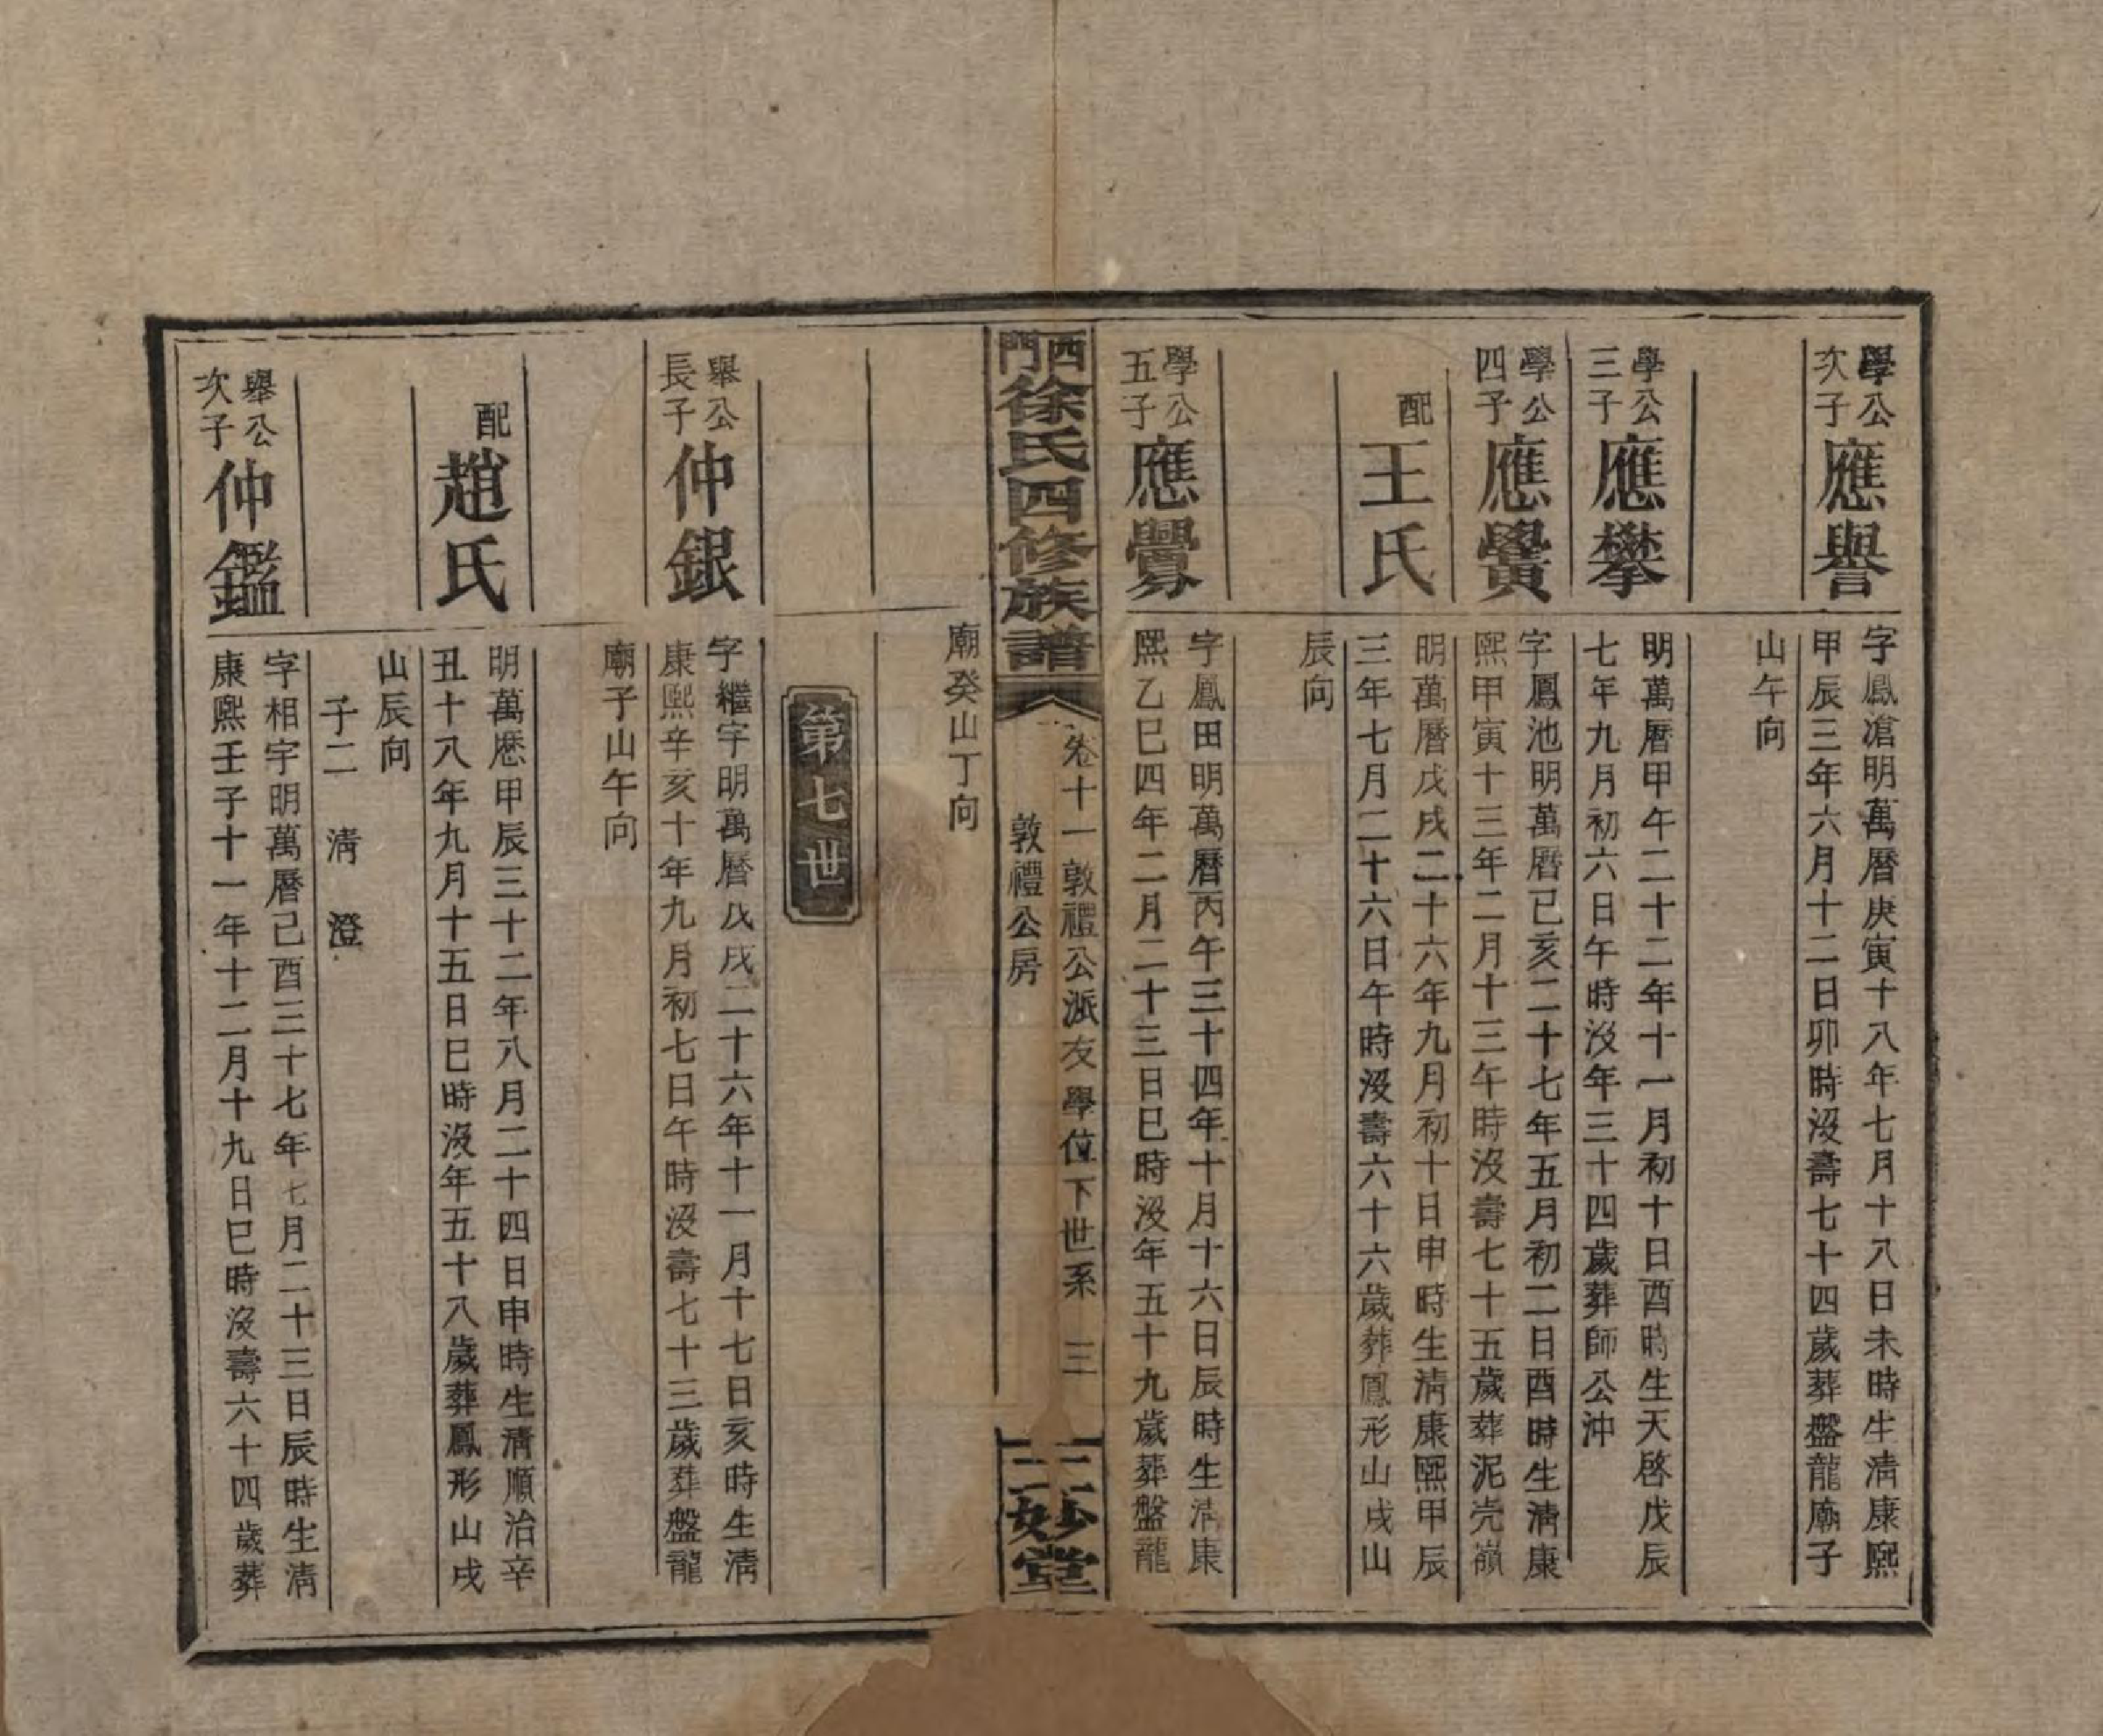 學公
次子
應譽
字鳳滄明萬曆庚寅十八年七月十八日未時生清康熙
甲辰三年六月十二日卯時沒壽七十四歲葬盤龍廟子
山午向
學公
三子
應攀
明萬曆甲午二十二年十一月初十日酉時生天啓戊辰
七年九月初六日午時沒年三十四歲葬師公沖
學公
四子
應黌
字鳳池明萬曆己亥二十七年五月初二日酉時生清康
熙甲寅十三年二月十三午時沒壽七十五歲葬泥壳嶺
配
王氏
明萬曆戊戌二十六年九月初十日申時生清康熙甲辰
三年七月二十六日午時沒壽六十六歲葬鳳形山戌山
辰向
學公
五子
應
字鳳田明萬曆丙午三十四年十月十六日辰時生清康
熙乙巳四年二月二十三日巳時沒年五十九歲葬盤龍
西門徐氏四修族譜
卷十一敦禮公派友學位下世系 三
敦禮公房
三妙堂
廟癸山丁向
第七世
舉公
長子
仲銀
字繼宇明萬曆戊戌二十六年十一月十七日亥時生清
康熙辛亥十年九月初七日午時沒壽七十三歲葬盤龍
廟子山午向
配
趙氏
明萬歷甲辰三十二年八月二十四日申時生清順治辛
丑十八年九月十五日巳時沒年五十八歲葬鳳形山戌
山辰向
子二 清 澄
舉公
次子
仲鑑
字相宇明萬曆己酉三十七年七月二十三日辰時生清
康熙壬子十一年十二月十九日巳時沒壽六十四歲葬